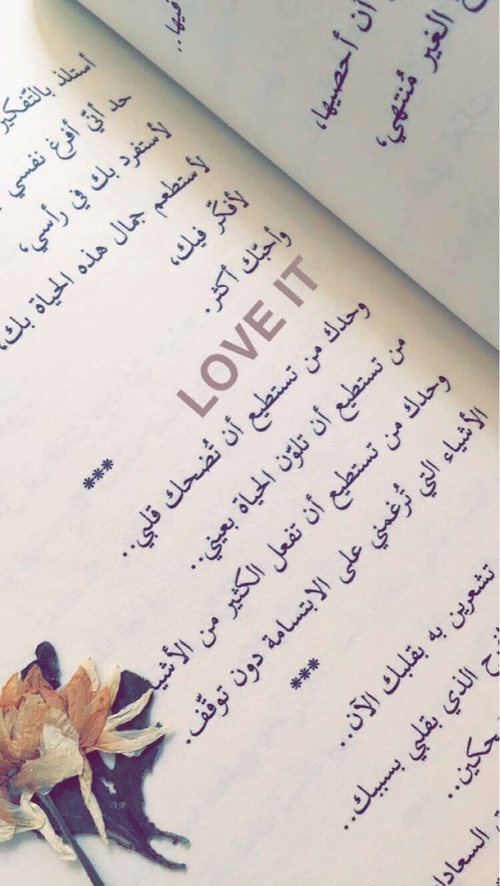 فيها..
أن أحصيها،
الغير مُنتهي،
أستلذ بالتّفكير
حد أنّي أفرغ نفسي
لأستفرد بك في رأسي،
لأستطعم جمال هذه الحياة بك،
لأفكّر فيك،
وأحبّك أكثر.
LOVE IT
***
وحدك من تستطيع أن تُضحك قلبي..
من تستطيع أن تلوّن الحياة بعيني..
وحدك من تستطيع أن تفعل الكثير من الأشيا
الأشياء التي تُرغمني على الابتسامة دون توقّف.
***
تشعرين به بقلبك الآن..
الذي بقلبي بسببك..